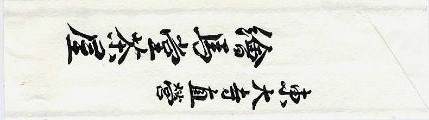 繪馬堂茶屋
東大寺直營